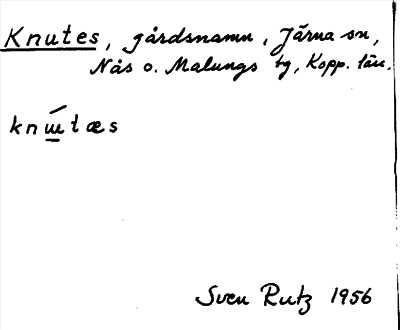 Knutes, gårdsnamn, Järna sn,
Nås o. Malungs tg, Kopp. län.
knɯ́tæs
Sven Rutz 1956